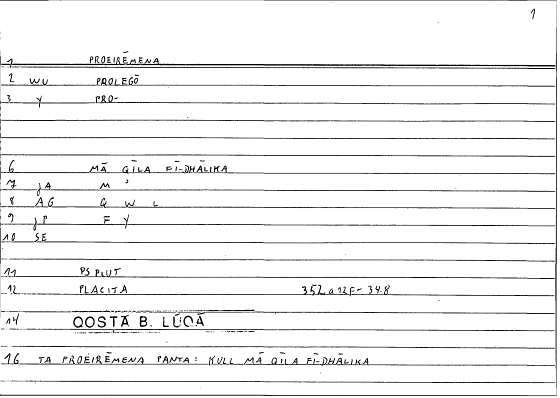 1
1 PROEIRĒMENA
2 WU PROLEGŌ
3 Y PRO-
6 MĀ QĪLA FĪ-DHĀLIKA
7 JA M '
8 AG Q W L
9 JP F Y
10 SE
11 PS PLUT
12 PLACITA 352 a 12 F - 34.8
14 QOSṬĀ B. LŪQĀ
16 TA PROEIRĒMENA PANTA: KULL MĀ QĪLA FĪ-DHĀLIKA